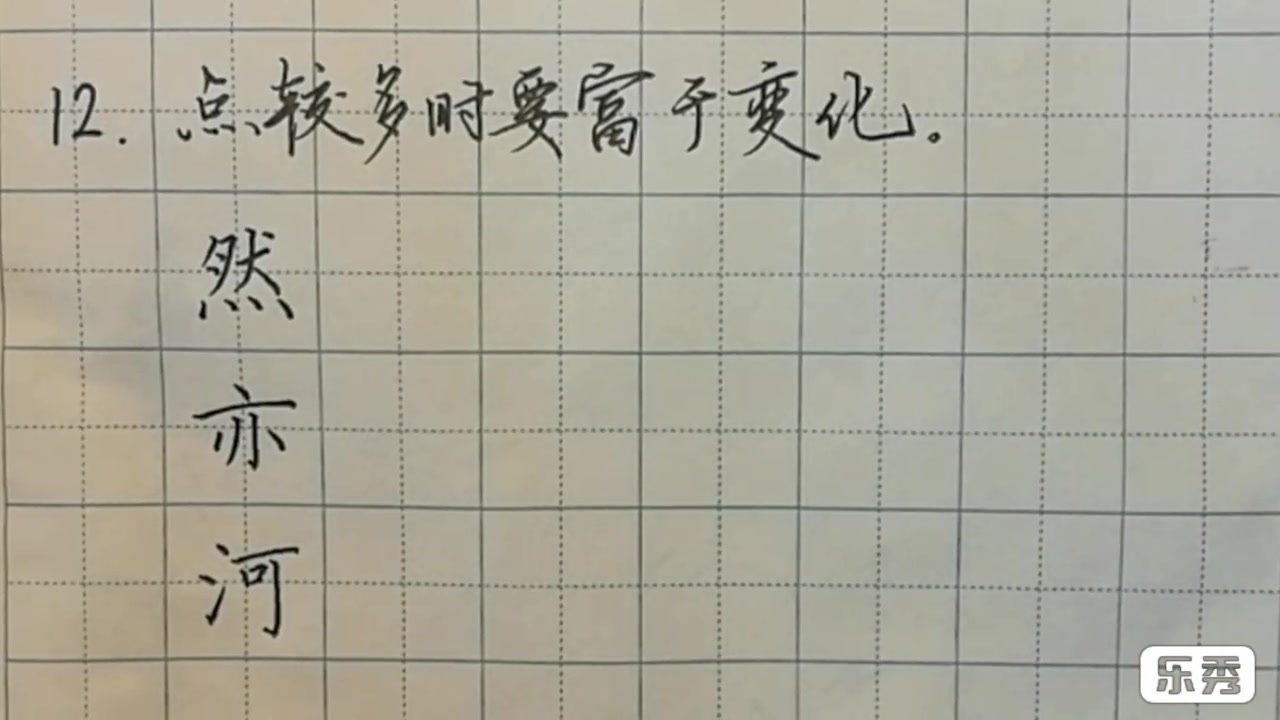 12. 点较多时要富于变化。
然
亦
河
乐秀